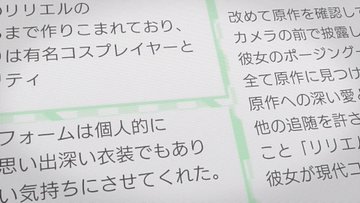 のリリエルの
まで作りこまれており、
は有名コスプレイヤーと
リティ
フォームは個人的に
思い出深い衣装でもあり
い気持ちにさせてくれた。
改めて原作を確認して
カメラの前で披露し
彼女のポージング
全て原作に見つけ
原作への深い愛と
他の追随を許さ
こと「リリエ
彼女が現代コ